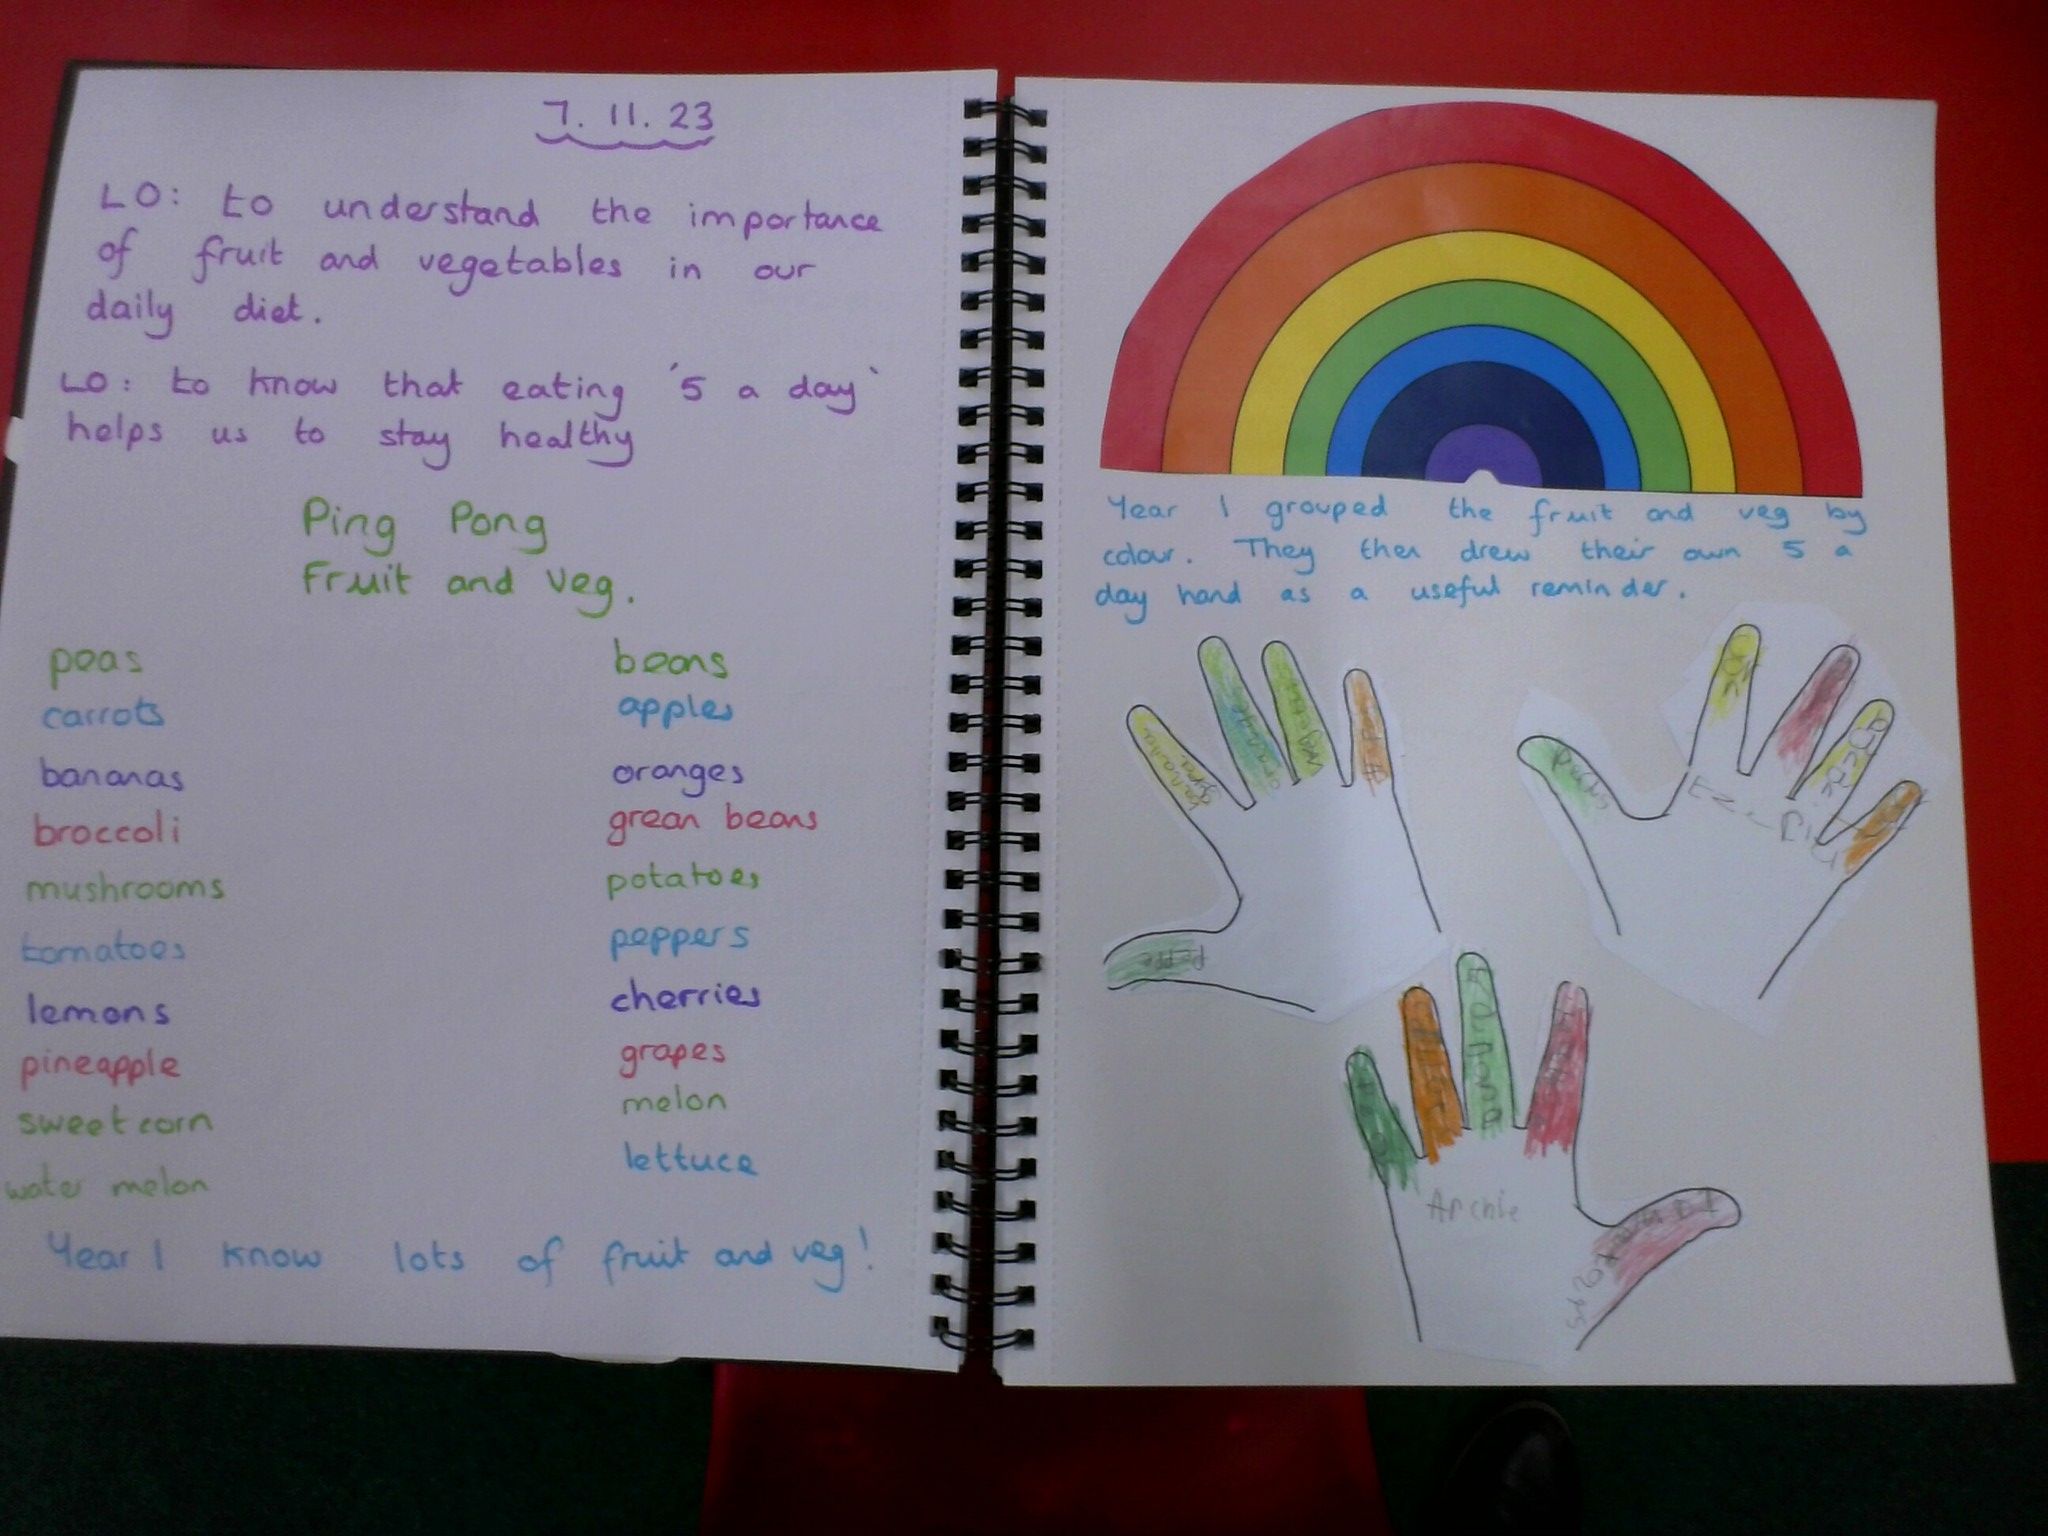 7. 11. 23
LO: to understand the importance
of fruit and vegetables in our
daily diet.
LO: to know that eating '5 a day'
helps us to stay healthy
Ping Pong
Fruit and veg.
peas
carrots
bananas
broccoli
mushrooms
tomatoes
lemons
pineapple
sweetcorn
water melon
beans
apples
oranges
green beans
potatoes
peppers
cherries
grapes
melon
lettuce
Year 1 know lots of fruit and veg!
Year 1 grouped the fruit and veg by
colour. They then drew their own 5 a
day hand as a useful reminder.
peppe
Archie